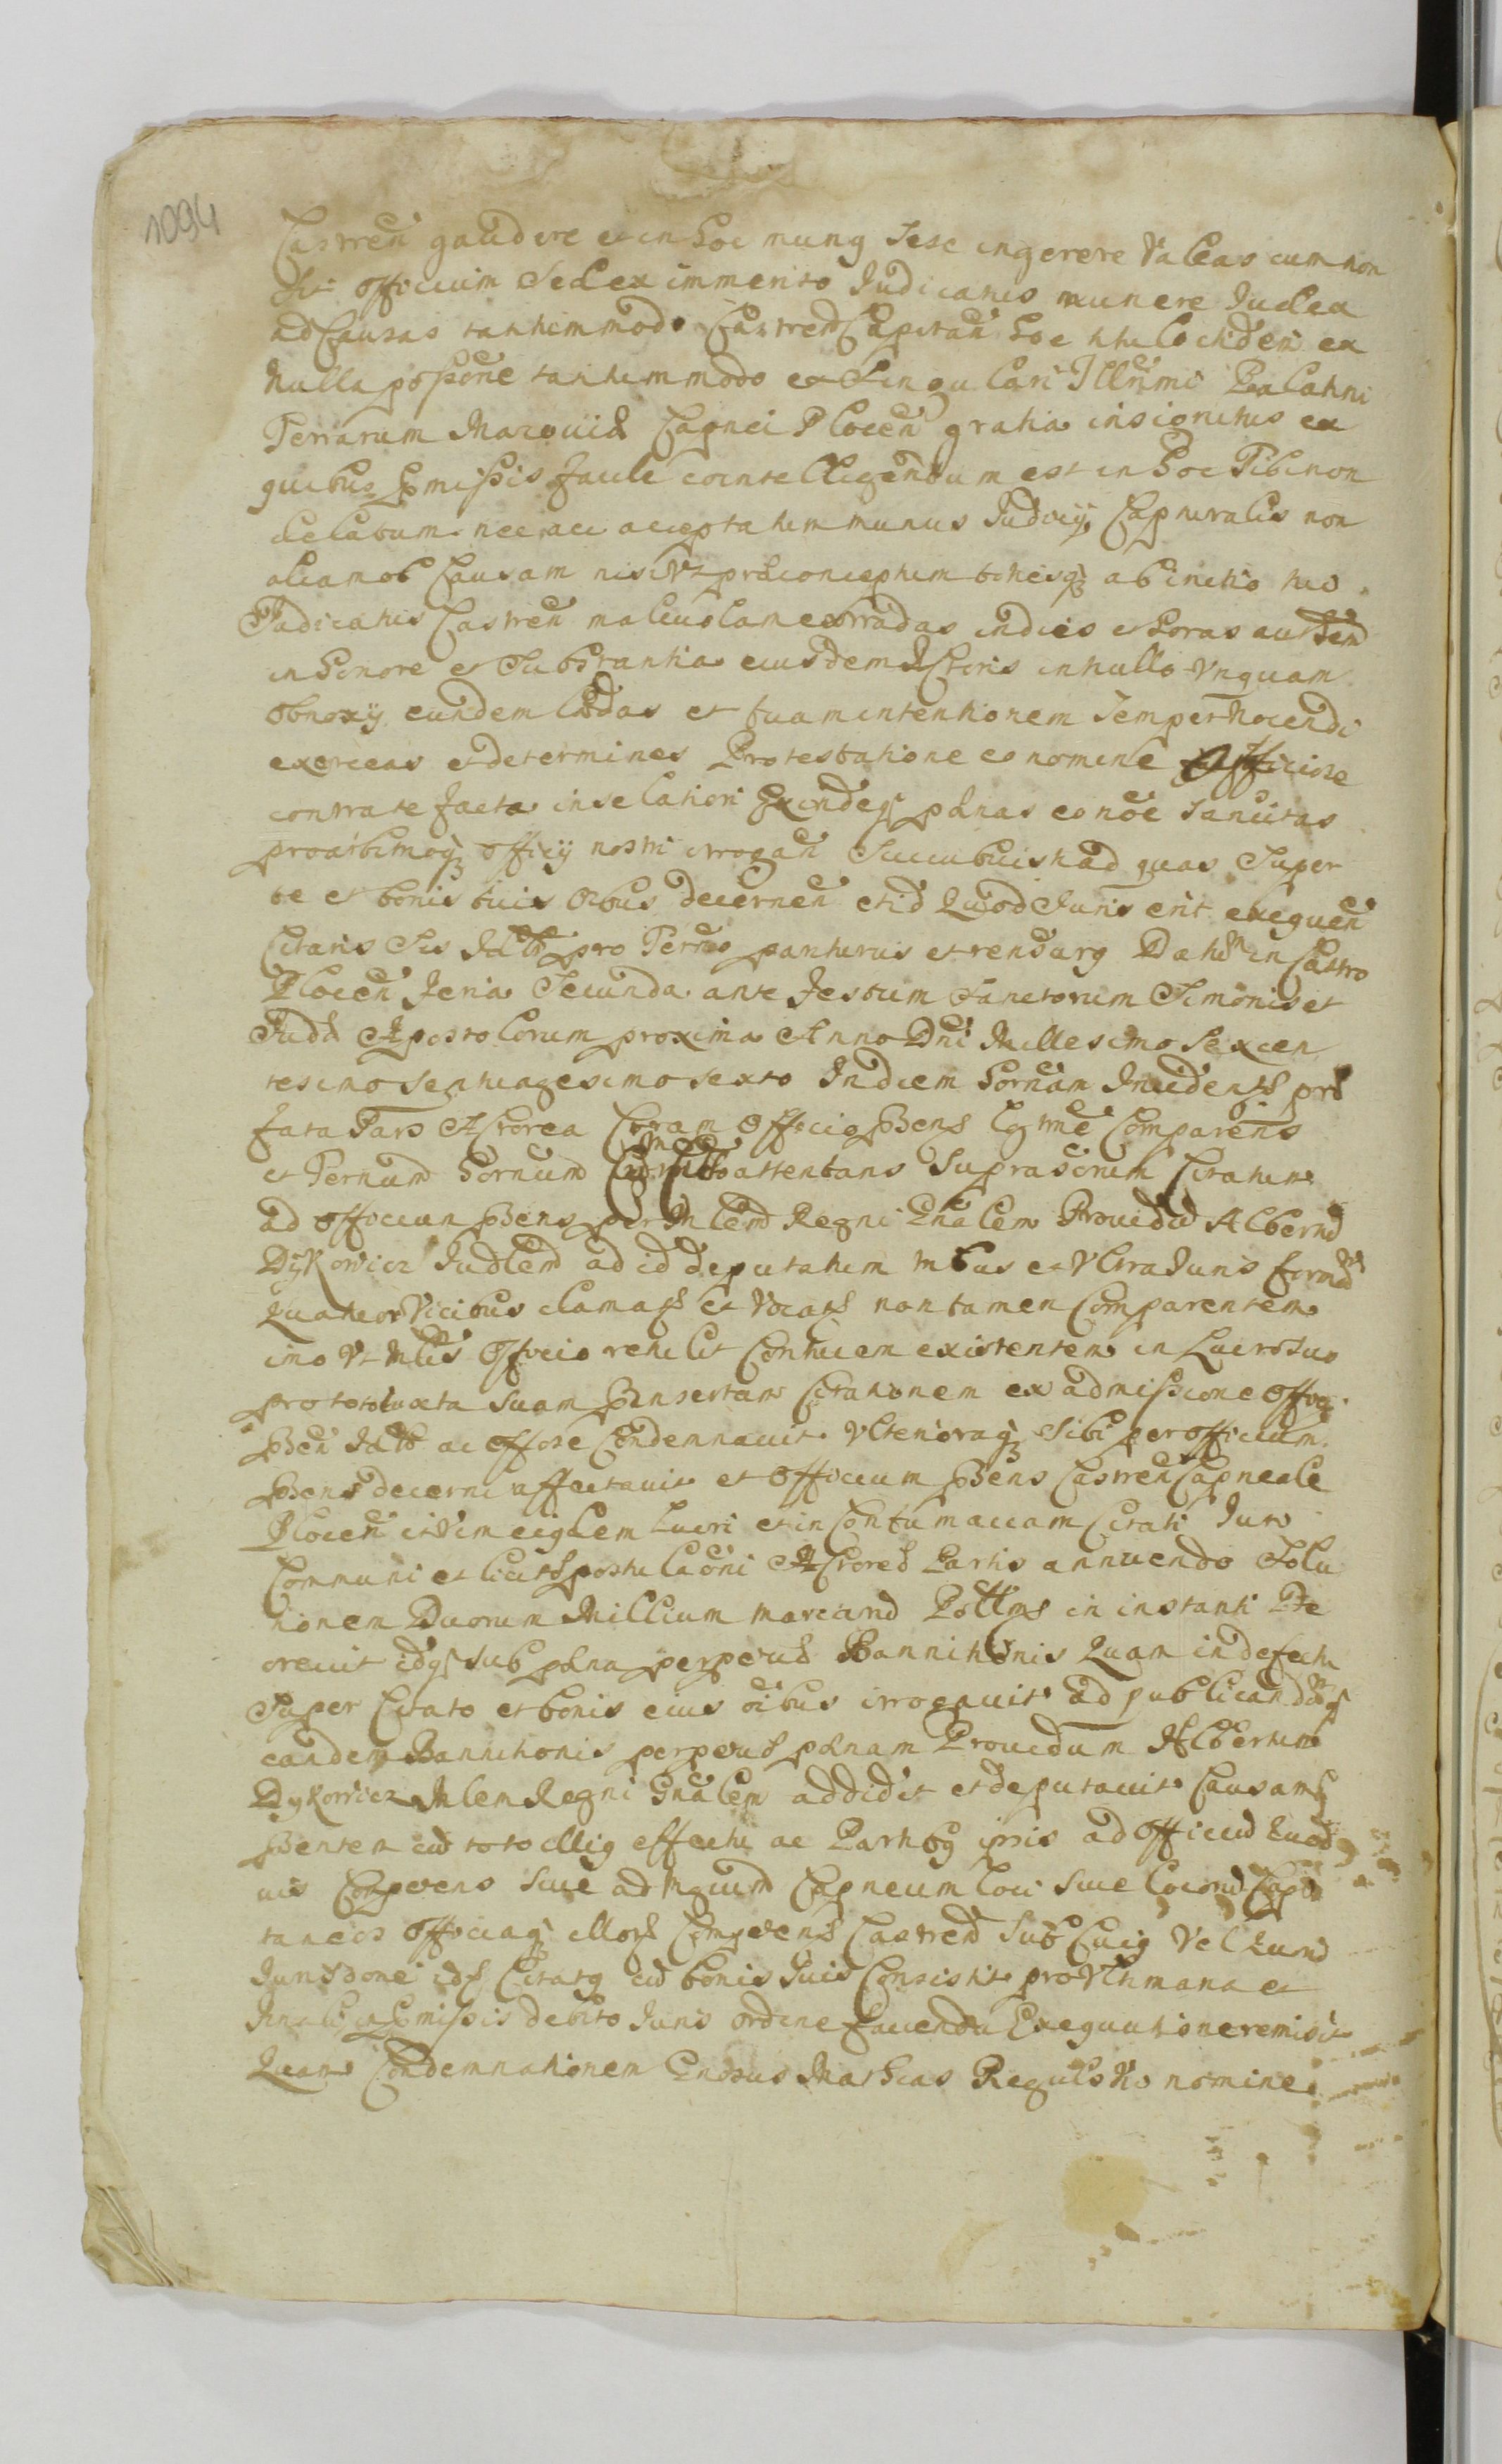 1094
Castren gaudere et in hoc munq sese ingerere valeas cum non
sit officium sed ex immerito Iudicatus munere Iudex
ad Causas tantummodo Castren Capitan hoc
nulla possone tantummodo ex singulari Illrmi Palatini
Terrarum Mazouiæ Capnei Plocen gratia insignitus ex
quibus præmissis facile intelligendum est in hoc Tibi non
delatum nec ac acceptatum munus Iudicij Capturalis non
aliam ob Causam nisi vt præconceptum ab initio
Iudicatus Castren maliuolam in dies et horas
in honore et Substantia eiusdem Actoris in nullo vnquam
obnoxij eundem lædas et tuam intentionem semper nocendi
exerceas et determines Protestatione eo nomine Officiose
contra te facta in relatiori Exindeq pænas eo noe sancitas
pro arbitrioq officij nostri irrogan Succubuisti ad quas Super
te et bonis tuis oibus decernen et id Quod Iuris erit exequen
Citaris Sis Iudlr pro Termo pariturus et rensurq Datum in Castro
Plocen feria Secunda ante festum Sanctorum Simonis et
Iudæ Apostolorum proxima Anno Dni Millesimo Sexcen
tesimo Septuagesimo sexto In diem hornam Incidentem præ
fata Pars Actorea Coram Officio præsens lgtme Comparens
et Ternum hornum attentans suprascrum Citatum
ad officium præsens per Mlem Regni Gnalem Prouidum Albertum
Dykowicz Iudlem ad id deputatum tribus et vltra Iuris formam
Quatuor vicibus clamat et vocat non tamen Comparentem
imo vt mlis officio retulit Contucem existentem in Lucro suo
pro toto iuxta suam præinsertam Citationem ex admissione officij
præsen Iudlr ac offose Condemnauit vlterioraq sibi per officium
præsens decerni affectauit et officium præsens Castren Capneale
Plocen itidem eiqdem Lucri et in Contumaciam Citati Iure
Communi et licitæ postulaoni Actoreæ Partis annuendo Solu
tionem Duorum Millium marcarum Polltium in instanti De
creuit idq sub pæna perpetuæ Bannitionis Quam in defectu
Super Citato et bonis eius oibus irrogauit ad publicandamq
eandem Bannitionis perpetuæ pænam Prouidum Albertum
Dykowicz Mlem Regni Gnalem addidit et deputauit Causamq
præsentem cum toto illiq effectu ac Partibq ipsis ad officium Quod
uis Competens siue ad Capneum loci siue locorum Capi
taneos officiaq illoq Competens Castren sub Cuiq vel Quorum
Iurisdone idq Citatq cum bonis suis Consistit pro vltimaria et
finali in præmissis debito Iuris ordine facienda Exequutione remisit
Quam Condemnationem Gnosus Mathias Regulski nomine